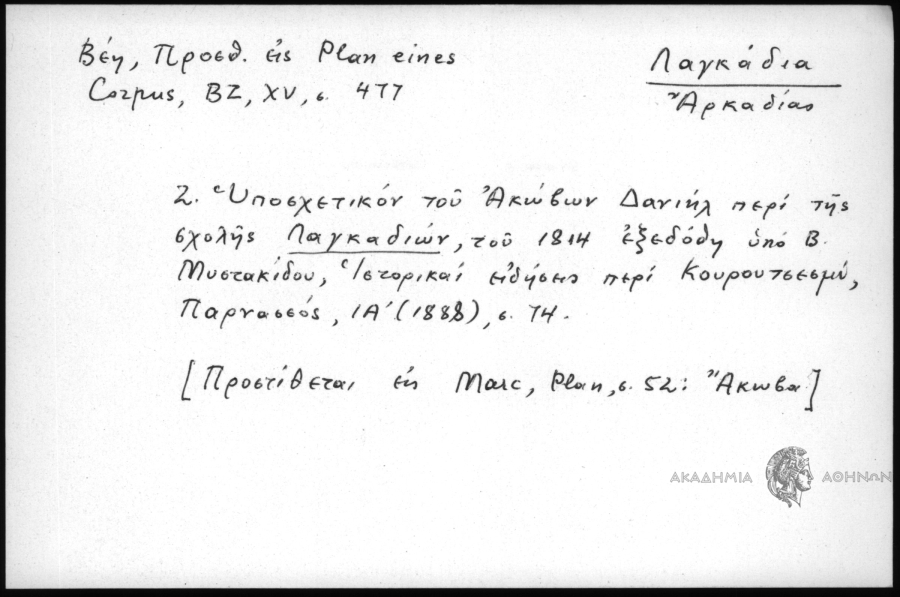 Βέη, Προσθ. εἰς Plan eines
Corpus, BZ, XV, σ. 477
Λαγκάδια
Ἀρκαδίας
2. Ὑποσχετικόν τοῦ Ἀκώβων Δανιήλ περί τῆς
σχολῆς Λαγκαδιών, τοῦ 1814 ἐξεδόθη ὑπό Β.
Μυστακίδου, Ἱστορικαί εἰδήσεις περί Κουρουτσεσμέ,
Παρνασσός, ΙΑ΄(1888), σ. 74.
[Προστίθεται εἰς Marc, Plan, σ. 52: Ἄκωβα]
ΑΚΑΔΗΜΙΑ ΑΘΗΝΩΝ